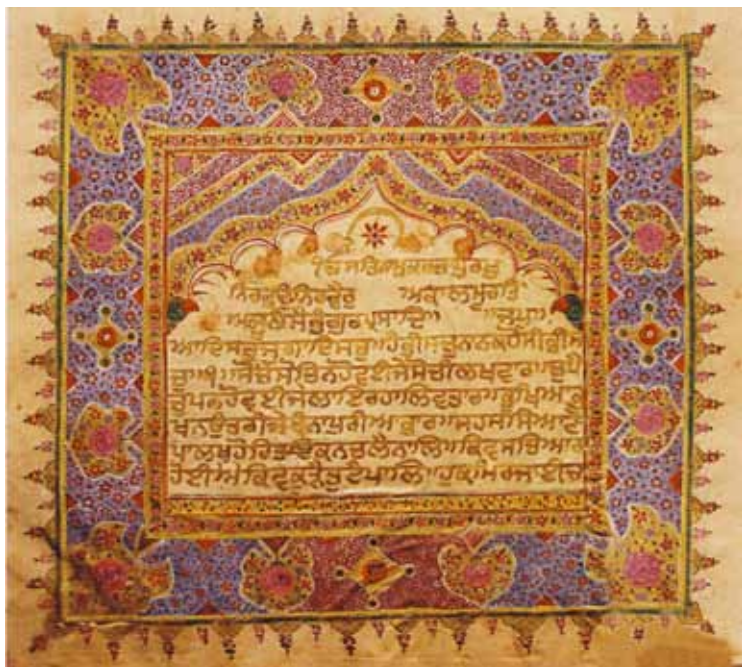 ੴ ਸਤਿਨਾਮੁਕਰਤਾਪੁਰਖੁ
ਨਿਰਭਉਨਿਰਵੈਰੁ ਅਕਾਲਮੂਰਤਿ
ਅਜੂਨੀਸੈਭੰਗੁਰਪ੍ਰਸਾਦਿ ॥ਜਪੁ॥
ਆਦਿਸਚੁਜੁਗਾਦਿਸਚੁ॥ਹੈਭੀਸਚੁਨਾਨਕਹੋਸੀਭੀਸ
ਚੁ॥੧॥ਸੋਚੈਸੋਚਿਨਹੋਵਈਜੇਸੋਚੀਲਖਵਾਰ॥ਚੁਪੈ
ਚੁਪਨਹੋਵਈਜੇਲਾਇਰਹਾਲਿਵਤਾਰ॥ਭੁਖਿਆਭੁ
ਖਨਉਤਰੀਜੇਬੰਨਾਪੁਰੀਆਭਾਰ॥ਸਹਸਸਿਆਣ
ਪਾਲਖਹੋਹਿਤਇਕਨਚਲੈਨਾਲਿ॥ਕਿਵਸਚਿਆਰਾ
ਹੋਈਐਕਿਵਕੂੜੈਤੁਟੈਪਾਲਿ॥ਹੁਕਮਿਰਜਾਈਚ